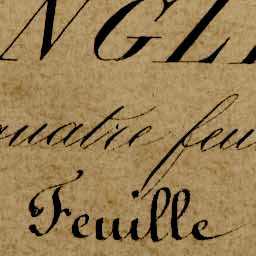 NGLE
quatre feu
Feuille